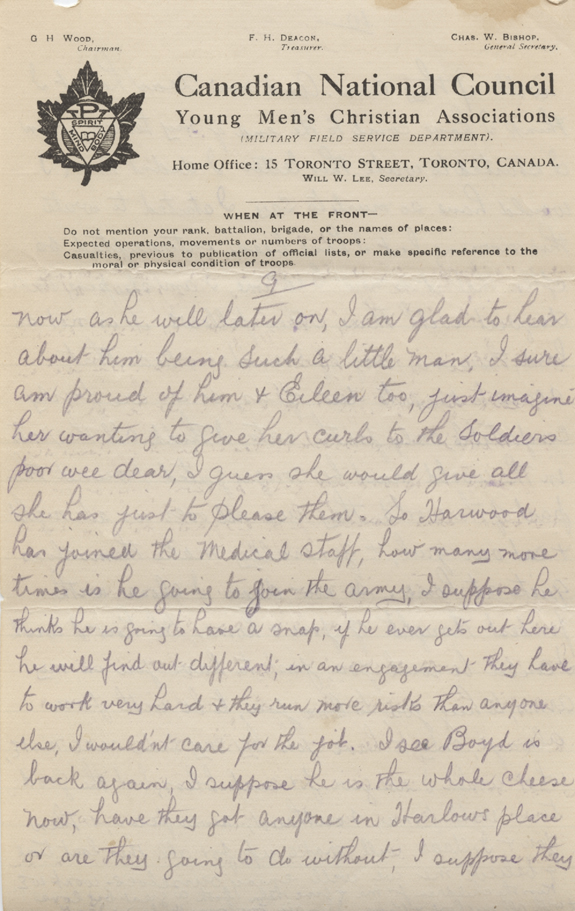 G H WOOD,
Chairman.
F. H. DEACON,
Treasurer.
CHAS. W. BISHOP,
General Secretary.
P
SPIRIT
MIND
BODY
Canadian National Council
Young Men's Christian Associations
(MILITARY FIELD SERVICE DEPARTMENT).
Home Office: 15 TORONTO STREET, TORONTO, CANADA.
WILL W. LEE, Secretary.
WHEN AT THE FRONT—
Do not mention your rank, battalion, brigade, or the names of places:
Expected operations, movements or numbers of troops:
Casualties, previous to publication of official lists, or make specific reference to the
moral or physical condition of troops
9
now as he will later on, I am glad to hear
about him being such a little man, I sure
am proud of him & Eileen too, just imagine
her wanting to give her curls to the Soldiers
poor wee dear, I guess she would give all
she has just to please them. So Harwood
has joined the Medical staff, how many more
times is he going to join the army, I suppose he
thinks he is going to have a snap, if he ever gets out here
he will find out different, in an engagement they have
to work very hard & they run more risks than anyone
else, I would'nt care for the job. I see Boyd is
back again, I suppose he is the whole cheese
now, have they got anyone in Harlows place
or are they going to do without, I suppose they